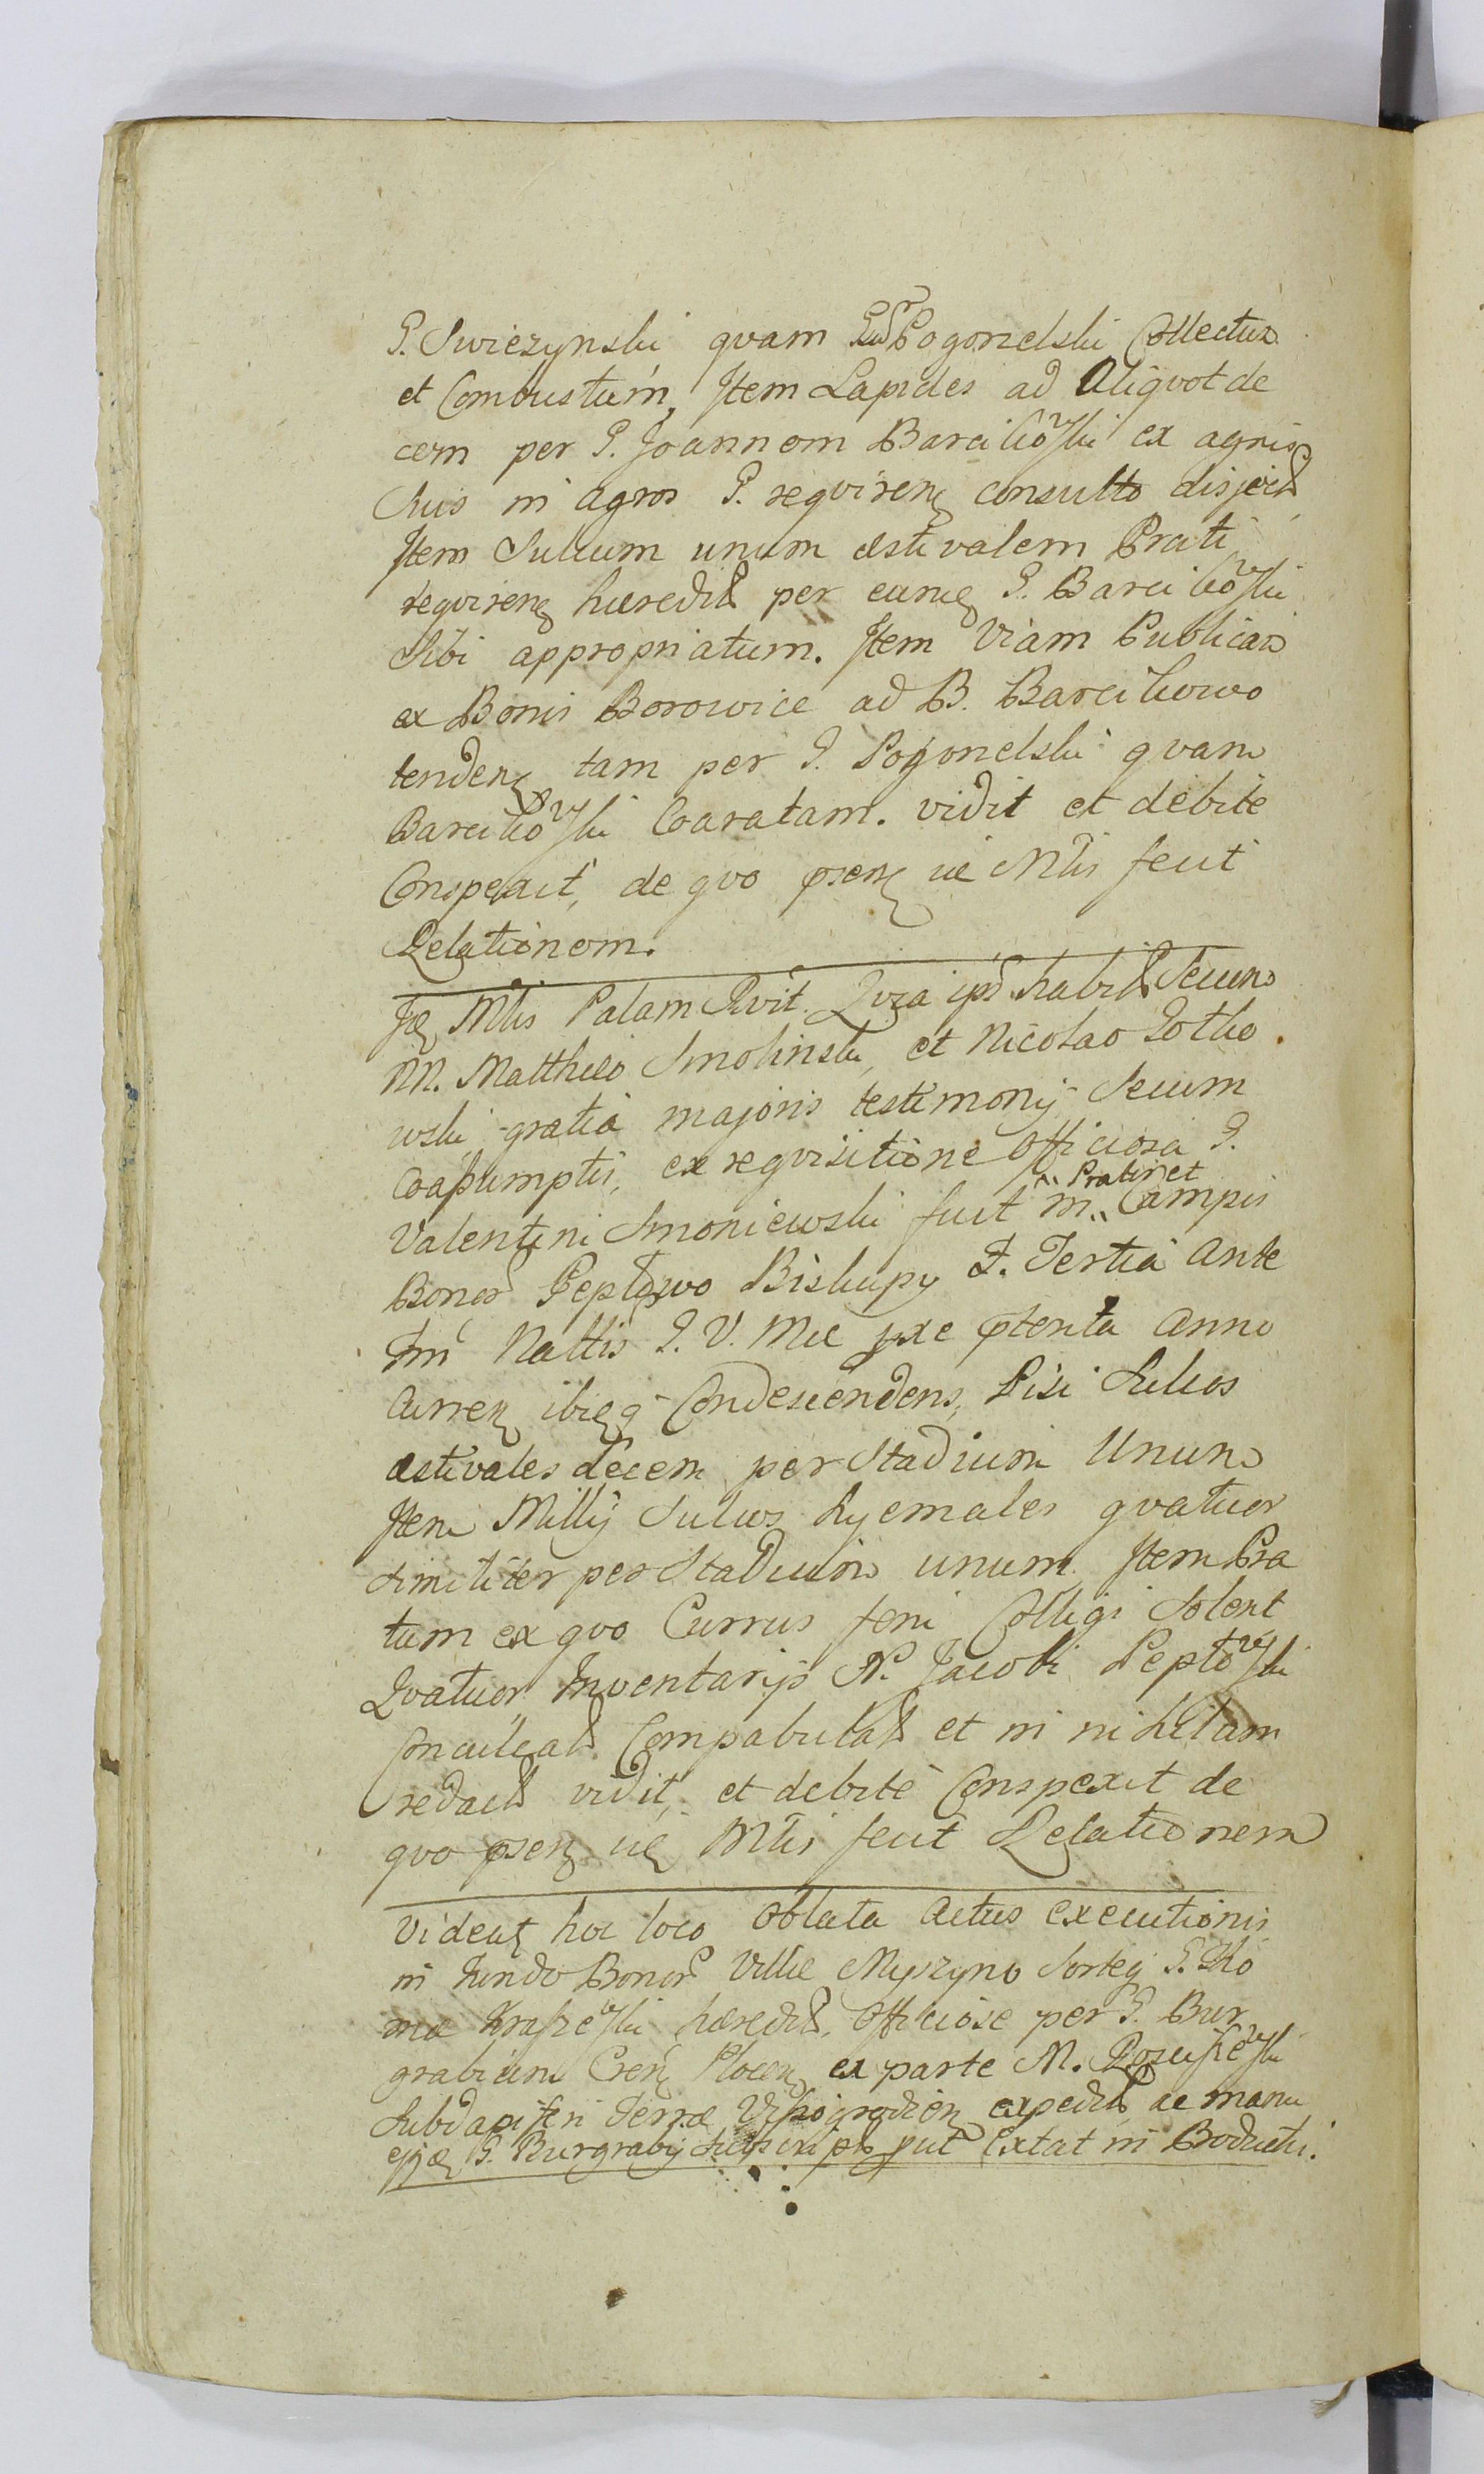 G. Swiezynski qvam Pogorzelski Collectum
et Combustum, Item Lapides ad Aliqvot de
cem per G. Joannem Barcikowski ex agris
Suis in agros G. reqviren consulto disject
Item Sulcum unum æstivalem Prati
reqviren hæredit per eund G. Barcikowski
Sibi appropriatum. Item Viam Publicam
ex Bonis Borowice ad B. Barcikowo
tenden tam per G. Pogorzelski qvam
Barcikowski Coaratam. vidit et debite
Conspexit, de qvo præsen ue Mlis fecit
Relationem.
Id Mlis Palam Rvit. Qvia ips habit Secum
NN. Matthæo Smolinski, et Nicolao Zotko
wski gratia majoris testimonij Secum
Coassumptis, ex reqvisitione Officiosa G.
Valentini Smoniewski fuit in Campis
Pratis et
Bonor Peplowo Biskupy F. Tertia Ante
Fm Nattis B. V. Mæ pxe pterita Anno
Curren ibiq Condescendens, Pisi Sulcos
æstivales decem per Stadium Unum
Item Millij Sulcos hyemales qvatuor
similiter per Stadium unum. Item Pra
tum ex qvo Currus feni Colligi Solent
Qvatuor, Inventarijs N. Jacobi Peplowski
Conculcat Compabulat et in nihilum
redact vidit, et debite Conspexit de
qvo præsen ue Mlis fecit Relationem
Videat hoc loco Oblata Actus Executionis
in Fundo Bonor Villæ Myszyno Sortis G. Tho
mæ Krajewski hæredit, Officiose per G. Bur
grabium Cren Plocen ex parte M.
Subdapiferi Terræ Wyssogrodien expedit ac manu
ejusd G. Burgrabij Subscript put Extat in Productu.